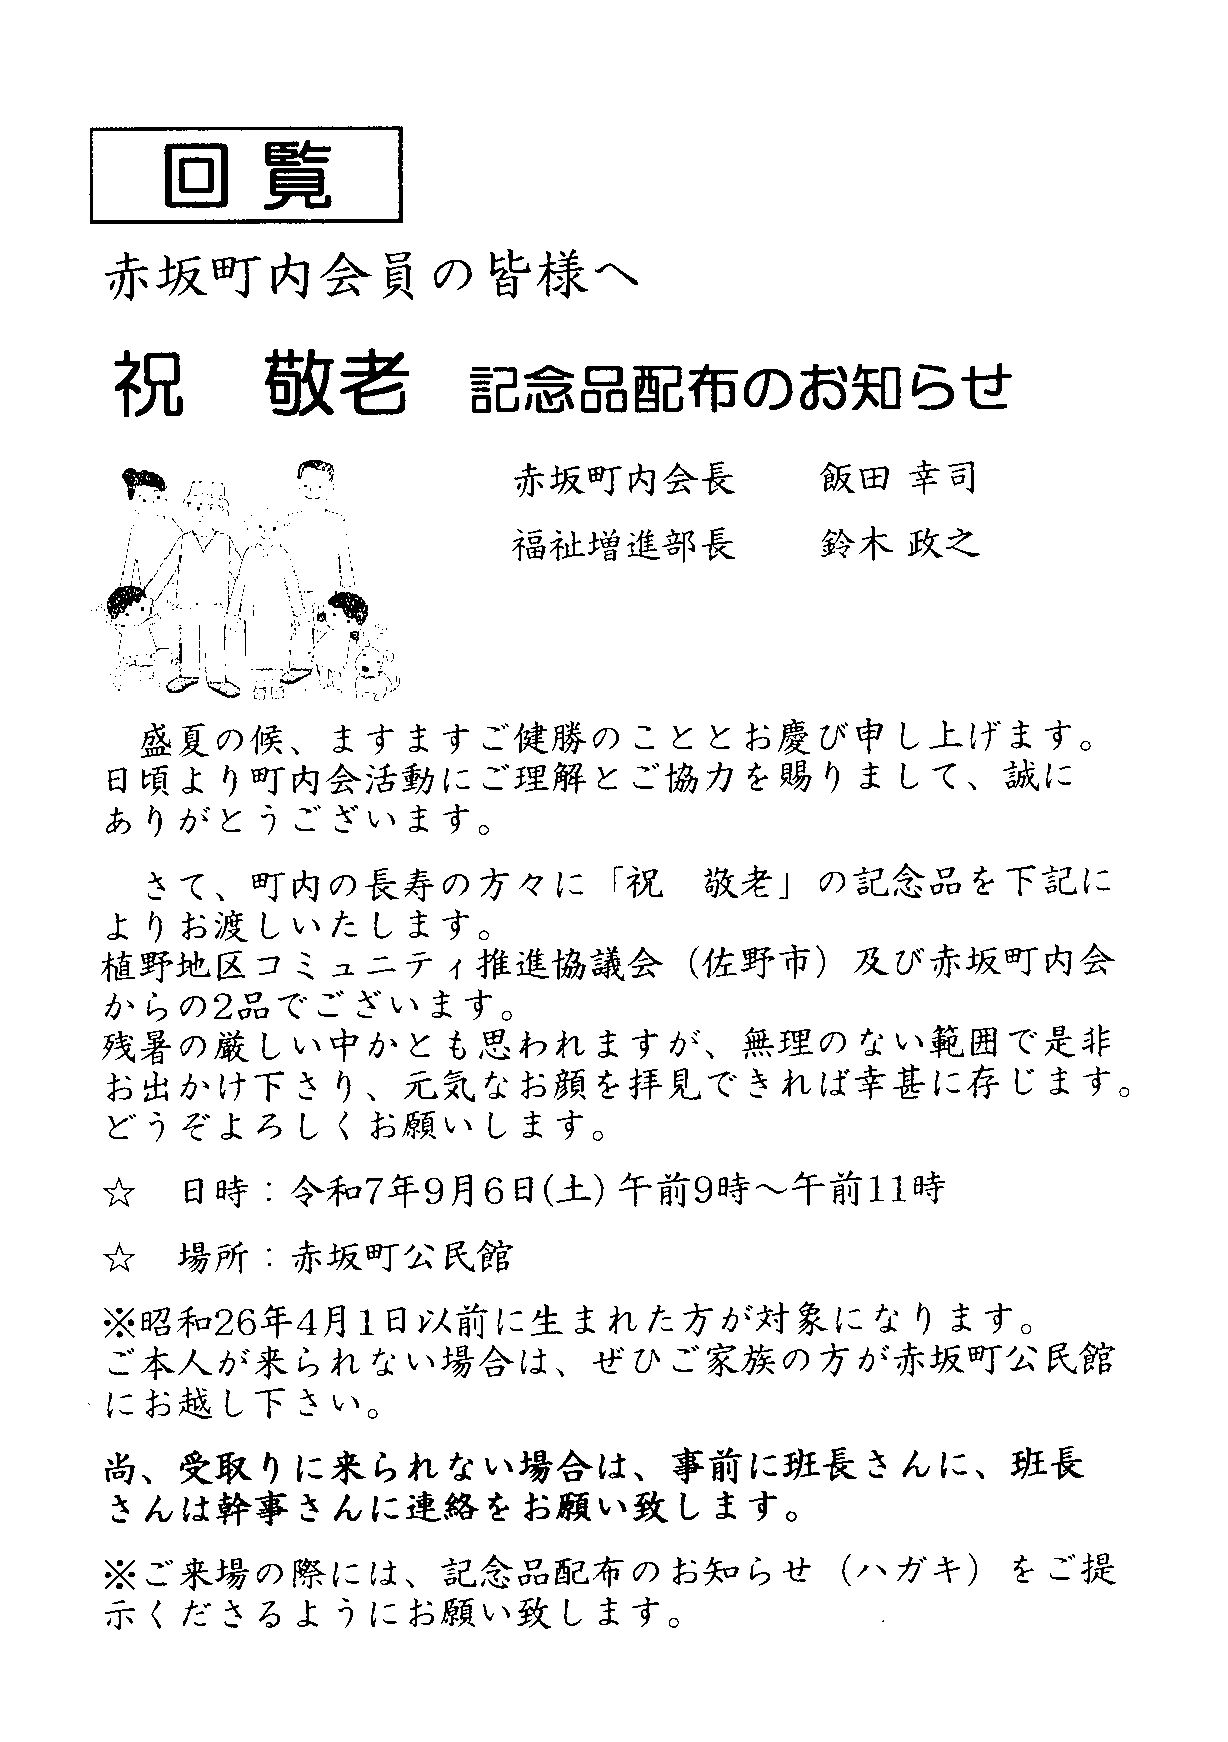 回覧
赤坂町内会員の皆様へ
祝　敬老　記念品配布のお知らせ
赤坂町内会長　飯田 幸司
福祉増進部長　鈴木 政之
盛夏の候、ますますご健勝のこととお慶び申し上げます。
日頃より町内会活動にご理解とご協力を賜りまして、誠に
ありがとうございます。
さて、町内の長寿の方々に「祝　敬老」の記念品を下記に
よりお渡しいたします。
植野地区コミュニティ推進協議会（佐野市）及び赤坂町内会
からの2品でございます。
残暑の厳しい中かとも思われますが、無理のない範囲で是非
お出かけ下さり、元気なお顔を拝見できれば幸甚に存じます。
どうぞよろしくお願いします。
☆　日時：令和7年9月6日(土) 午前9時～午前11時
☆　場所：赤坂町公民館
※昭和26年4月1日以前に生まれた方が対象になります。
ご本人が来られない場合は、ぜひご家族の方が赤坂町公民館
にお越し下さい。
尚、受取りに来られない場合は、事前に班長さんに、班長
さんは幹事さんに連絡をお願い致します。
※ご来場の際には、記念品配布のお知らせ（ハガキ）をご提
示くださるようにお願い致します。